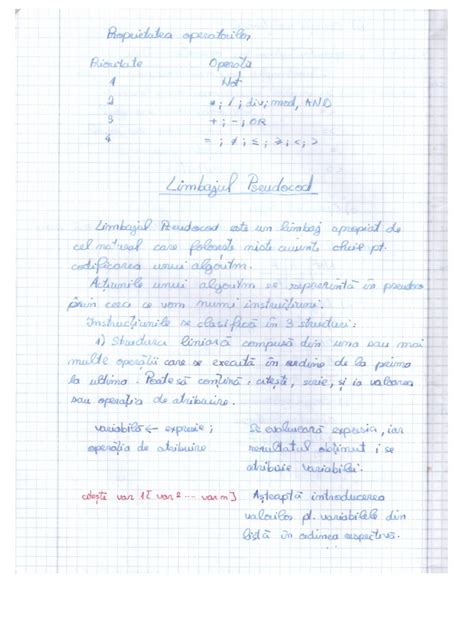 Proprietatea operatorilor
Prioritate Operator
1 Not
2 *; /; div; mod, AND
3 +; -; OR
4 = ; ≠ ; ≤ ; ≥ ; < ; >
Limbajul Pseudocod
Limbajul Pseudocod este un limbaj apropiat de
cel natural care folosește niște cuvinte cheie pt.
codificarea unui algoritm.
Acțiunile unui algoritm se reprezintă în pseudo
prin ceea ce vom numi instrucțiuni.
Instrucțiunile se clasifică în 3 structuri:
1) Structura liniară compusă din una sau mai
multe operații care se execută în ordine de la prima
la ultima. Poate să conțină: citește, scrie, și ia valoarea
sau operația de atribuire.
variabilă ← expresie;
operația de atribuire
Se evaluează expresia, iar
rezultatul obținut i se
atribuie variabilei.
citește var 1[ var 2 ... var m]
Așteaptă introducerea
valorilor pt. variabilele din
listă în ordinea respectivă.